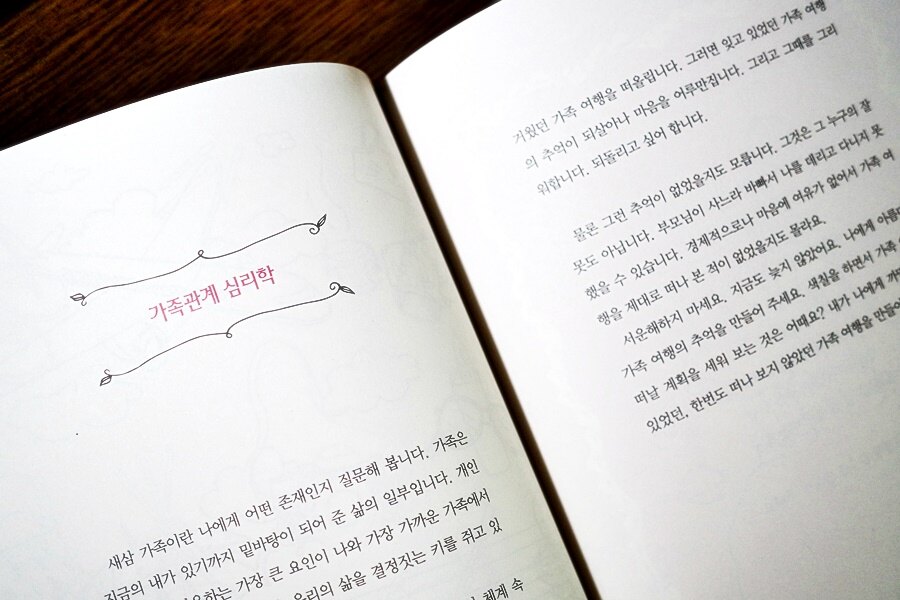 가족관계 심리학
새삼 가족이란 나에게 어떤 존재인지 질문해 봅니다. 가족은
지금의 내가 있기까지 밑바탕이 되어 준 삶의 일부입니다. 개인
하는 가장 큰 요인이 나와 가장 가까운 가족에서
우리의 삶을 결정짓는 키를 쥐고 있
체계 속
거웠던 가족 여행을 떠올립니다. 그러면 잊고 있었던 가족 여행
의 추억이 되살아나 마음을 어루만집니다. 그리고 그때를 그리
워합니다. 되돌리고 싶어 합니다.
물론 그런 추억이 없었을지도 모릅니다. 그것은 그 누구의 잘
못도 아닙니다. 부모님이 사느라 바빠서 나를 데리고 다니지 못
했을 수 있습니다. 경제적으로나 마음에 여유가 없어서 가족 여
행을 제대로 떠나 본 적이 없었을지도 몰라요.
서운해하지 마세요. 지금도 늦지 않았어요. 나에게 아름다
가족 여행의 추억을 만들어 주세요. 색칠을 하면서 가족
떠날 계획을 세워 보는 것은 어때요? 내가 나에게
있었던, 한번도 떠나 보지 않았던 가족 여행을 만들어